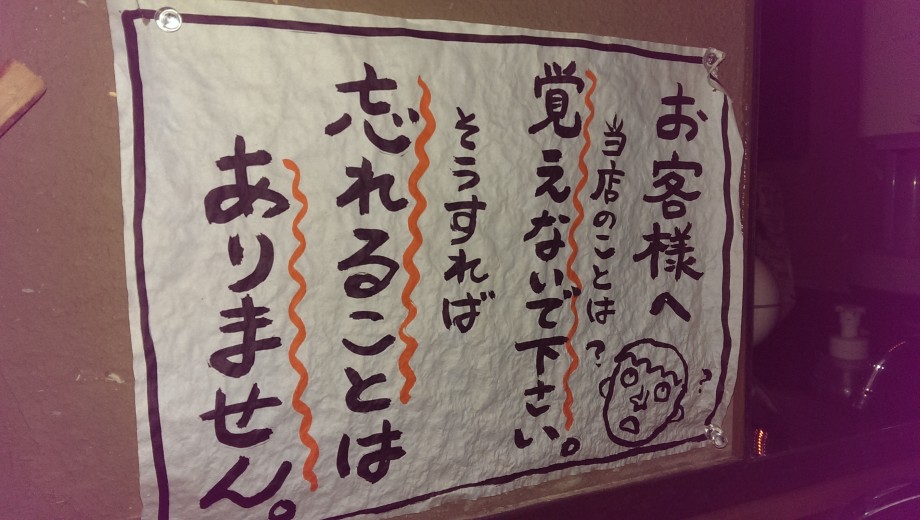 お客様へ
当店のことは
覚えないで下さい。
そうすれば
忘れることは
ありません。
? ?